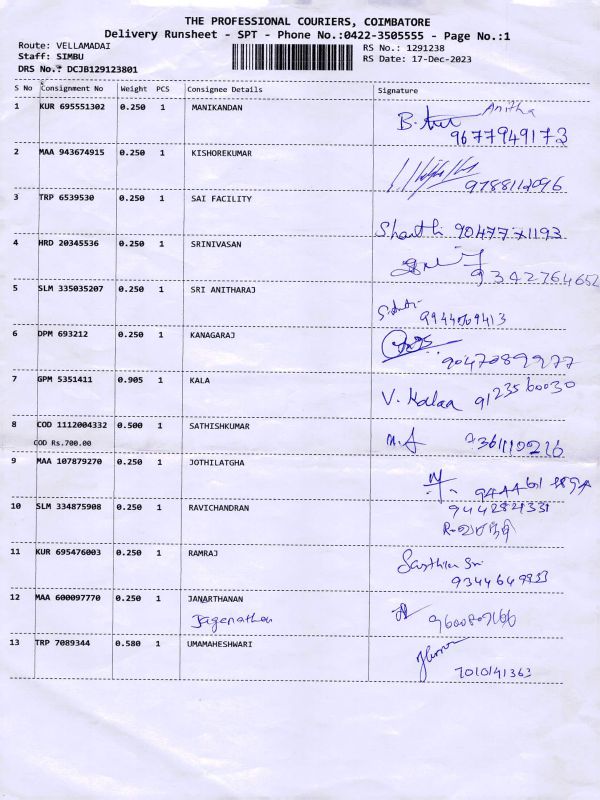 THE PROFESSIONAL COURIERS, COIMBATORE
Delivery Runsheet - SPT - Phone No.:0422-3505555 - Page No.:1
Route: VELLAMADAI RS No.: 1291238
Staff: SIMBU RS Date: 17-Dec-2023
DRS No.: DCJB129123801
S No Consignment No Weight PCS Consignee Details Signature
1 KUR 695551302 0.250 1 MANIKANDAN Anitha
9677949173
2 MAA 943674915 0.250 1 KISHOREKUMAR
9788112096
3 TRP 6539530 0.250 1 SAI FACILITY
Shanthi 90477 71193
4 HRD 20345536 0.250 1 SRINIVASAN
9342764652
5 SLM 335035207 0.250 1 SRI ANITHARAJ
6 DPM 693212 0.250 1 KANAGARAJ
9047089977
7 GPM 5351411 0.905 1 KALA V. Kalaa 9123560030
8 COD 1112004332 0.500 1 SATHISHKUMAR
COD Rs.700.00
9 MAA 107879270 0.250 1 JOTHILATGHA
10 SLM 334875908 0.250 1 RAVICHANDRAN
11 KUR 695476003 0.250 1 RAMRAJ
12 MAA 600097770 0.250 1 JANARTHANAN
Jagenathan
13 TRP 7089344 0.580 1 UMAMAHESHWARI
7010141363